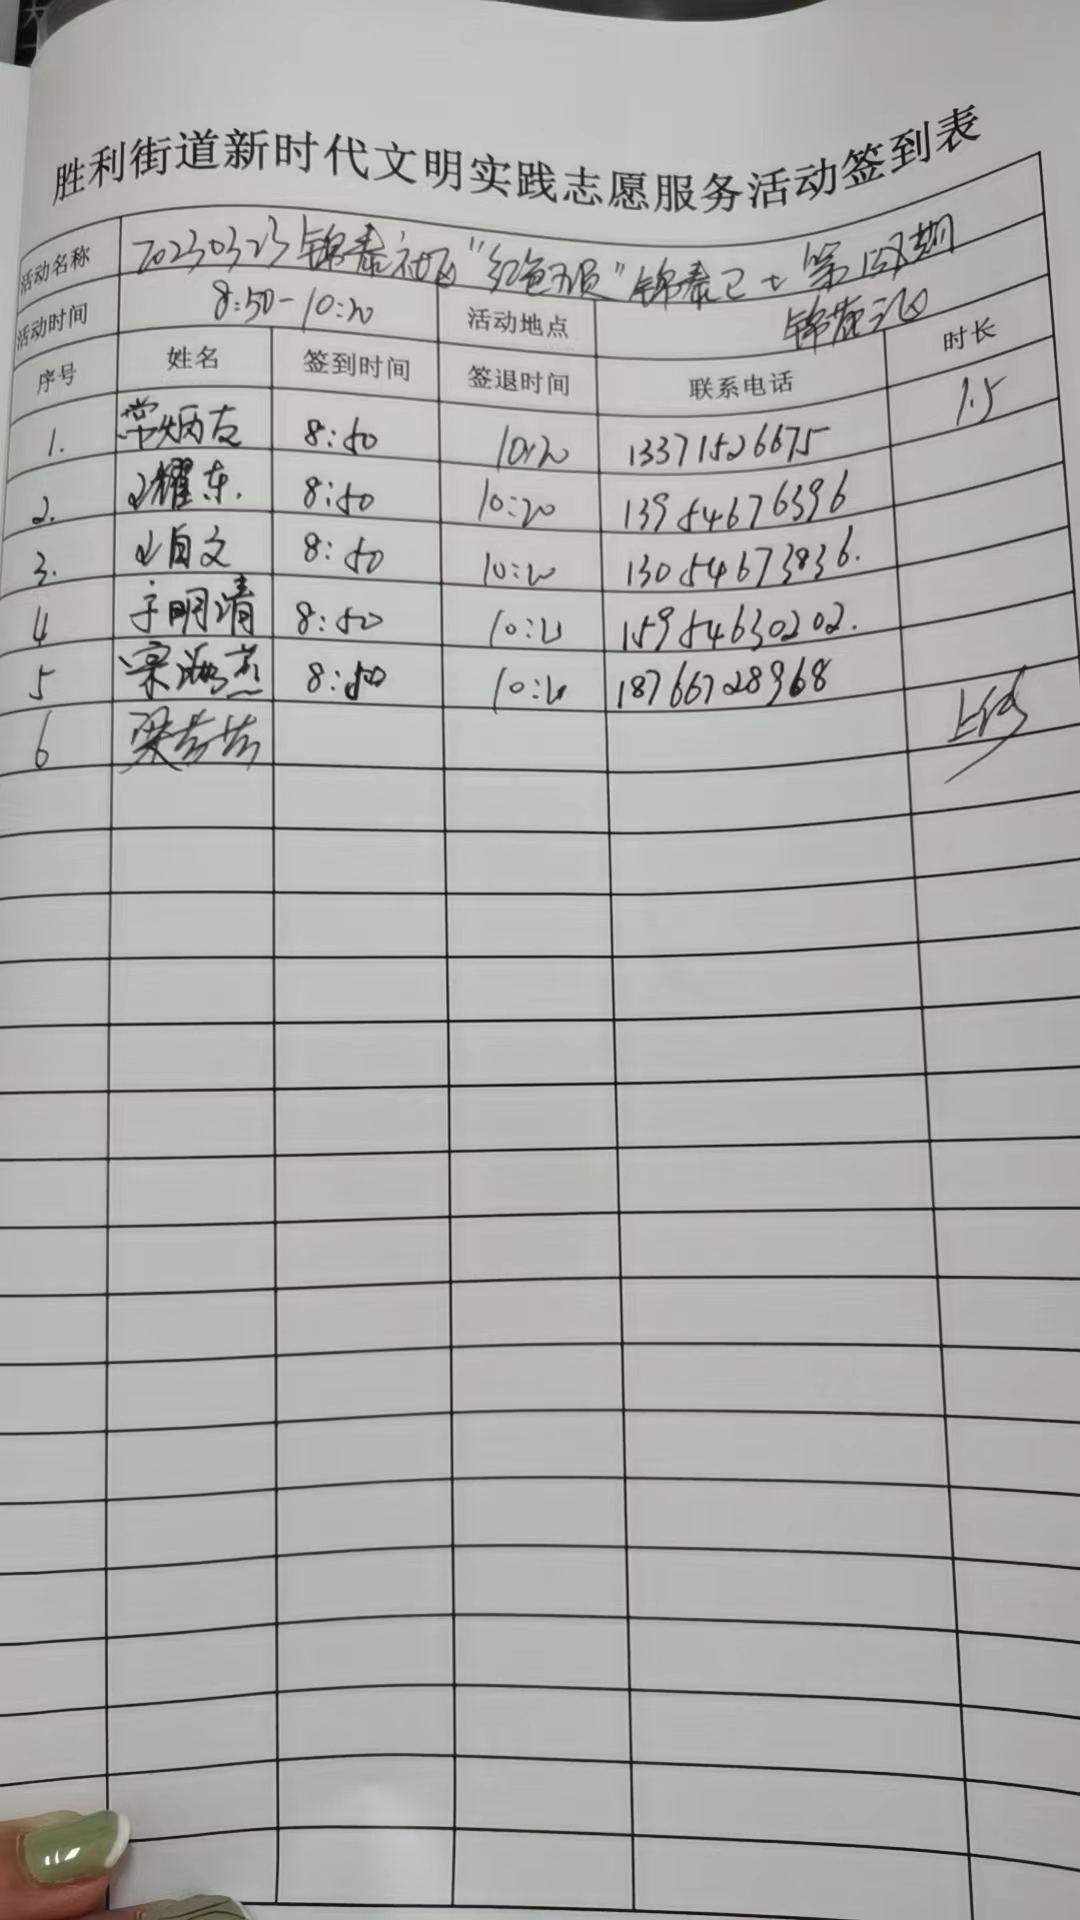 胜利街道新时代文明实践志愿服务活动签到表
活动名称 20230323锦泰社区"红色"锦泰 第 期
活动时间 8:50-10:20 活动地点 锦泰社区
序号 姓名 签到时间 签退时间 联系电话 时长
1. 常炳友 8:50 10:20 13371526675 1.5
2. 耀东. 8:50 10:20 13954676396
3. 自文 8:50 10:20 13054673836.
4 于明清 8:50 10:20 15954630202.
5 宋海燕 8:50 10:20 18766728968
6 梁芳芳 上传